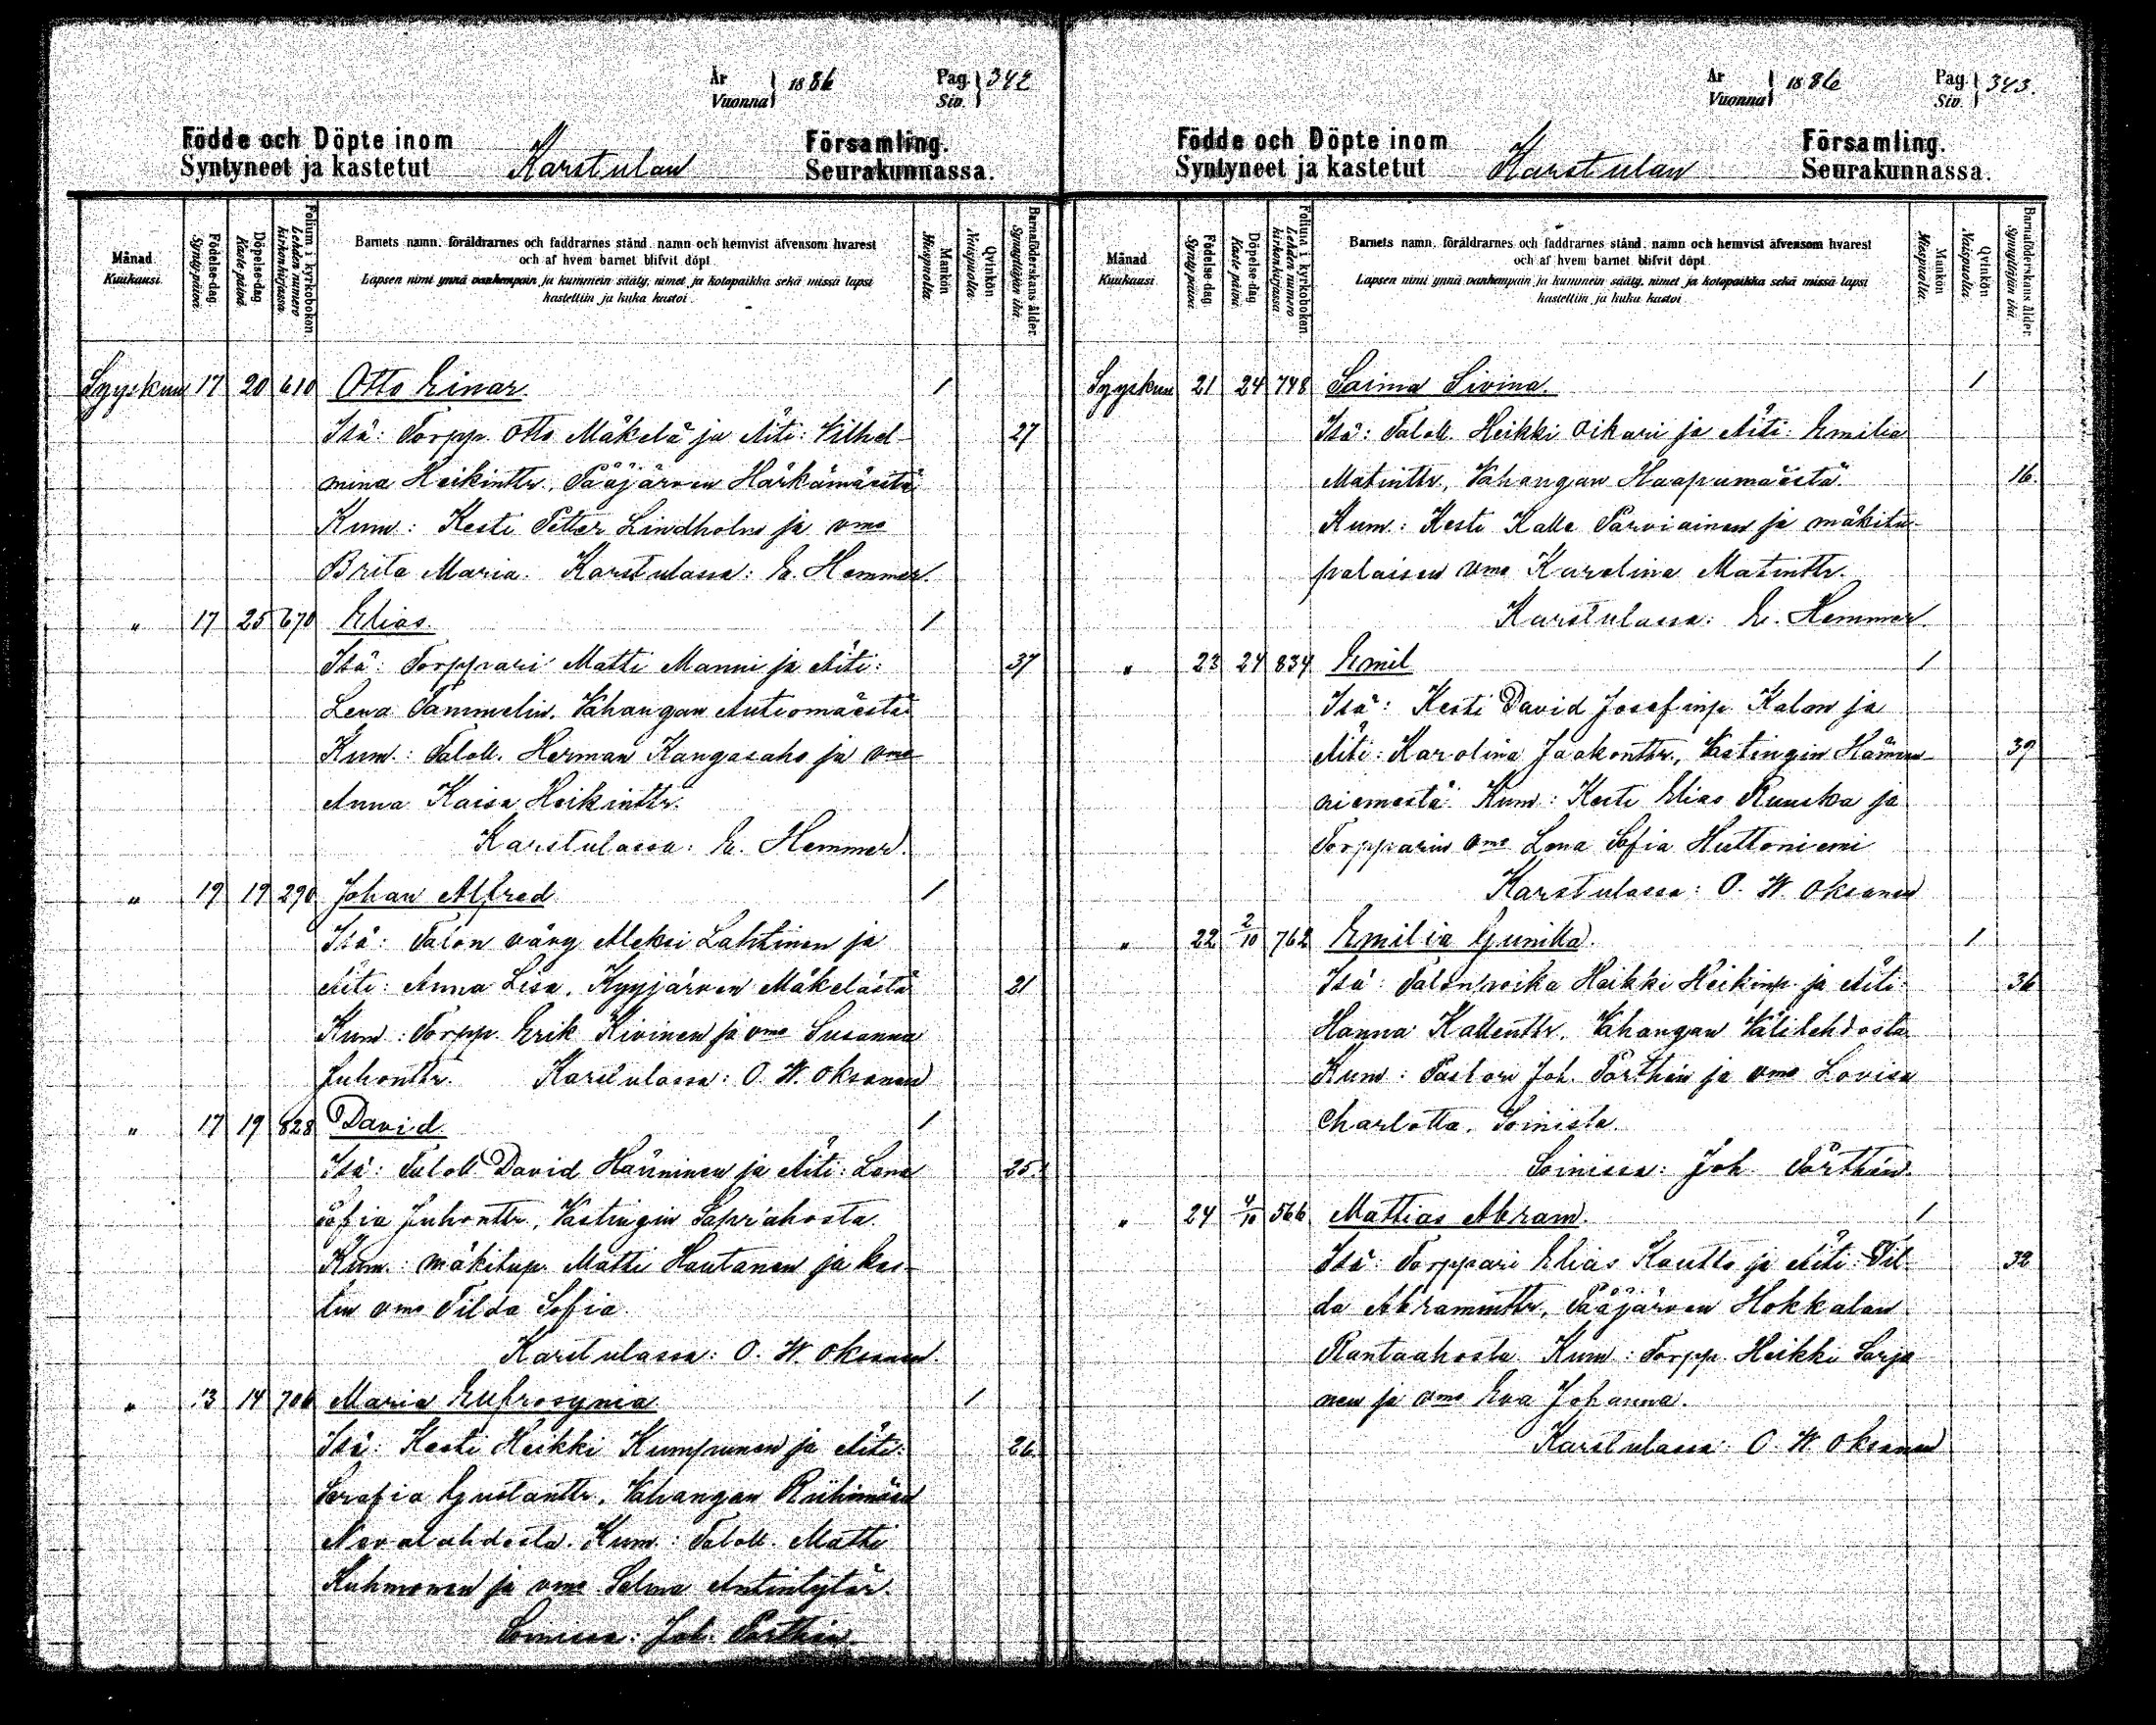 År
Vuonna
1886
Pag.
Siv.
342
Födde och Döpte inom
Syntyneet ja kastetut
Karstulan
Församling.
Seurakunnassa.
Månad
Kuukausi.
Födelse-dag.
Synty-päivä.
Döpelse-dag.
Kaste-päivä.
Folium i kyrkoboken.
Lehden numero kirkonkirjassa.
Barnets namn, föräldrarnes och faddrarnes stånd, namn och hemvist äfvensom hvarest
och af hvem barnet blifvit döpt.
Lapsen nimi ynnä vanhempain ja kummein sääty, nimet ja kotopaikka sekä missä lapsi
kastettiin ja kuka kastoi.
Mankön
Miespuolia.
Qvinkön
Naispuolia.
Barnaföderskans ålder.
Synnyttäjän ikä.
Syyskuu 17 20 610 Otto Einar. 1
Isä: Torpp. Otto Mäkelä ja Äiti: Vilhel- 27
mina Heikinttr., Pääjärven Härkämäestä
Kum: Kesti Petter Lindholm ja vmo
Brita Maria. Karstulassa: E. Hemmer.
" 17 25 670 Elias. 1
Isä: Torppari Matti Manni ja Äiti: 37
Lena Tammelin, Vahangan Autiomäestä
Kum.: Taloll. Herman Kangasaho ja vmo
Anna Kaisa Heikinttr.
Karstulassa: E. Hemmer.
" 19 19 290 Johan Alfred 1
Isä: Talon vävy Aleksi Lahtinen ja
Äiti: Anna Lisa, Kyyjärven Mäkelästä 21
Kum: Torpp. Erik Kivinen ja vmo Susanna
Juhonttr. Karstulassa: O. W. Oksanen
" 17 19 828 David. 1
Isä: Taloll. David Hänninen ja Äiti: Lena 25.
Sofia Juhonttr., Vastingin
Kum.: mäkitup. Matti Hautanen ja kes-
tin vmo Tilda Sofia.
Karstulassa: O. W. Oksanen.
" 13 14 706 Maria Eufrosynia 1
Isä: Kesti Heikki Kumpunen ja Äiti: 26.
Serafia Gustanttr., Vahangan Riihimäen
Nevalahdesta. Kum.: Taloll. Matti
Kuhmonen ja vmo Selma Antintytär.
Soinissa: Joh. Porthén
År
Vuonna
1886
Pag.
Siv.
343.
Födde och Döpte inom
Syntyneet ja kastetut
Karstulan
Församling.
Seurakunnassa.
Månad
Kuukausi.
Födelse-dag.
Synty-päivä.
Döpelse-dag.
Kaste-päivä.
Folium i kyrkoboken.
Lehden numero kirkonkirjassa.
Barnets namn, föräldrarnes och faddrarnes stånd, namn och hemvist äfvensom hvarest
och af hvem barnet blifvit döpt.
Lapsen nimi ynnä vanhempain ja kummein sääty, nimet ja kotopaikka sekä missä lapsi
kastettiin ja kuka kastoi.
Mankön
Miespuolia.
Qvinkön
Naispuolia.
Barnaföderskans ålder.
Synnyttäjän ikä.
Syyskuu 21 24 748 Saima Sivina. 1
Isä: Taloll. Heikki Oikari ja Äiti: Emilia
Matinttr., Vahangan Haapamäestä 16.
Kum.: Kesti Kalle Parviainen ja mäkitu-
palaisen vmo Karolina Matinttr.
Karstulassa: E. Hemmer.
" 23 24 834 Emil 1
Isä: Kesti David Josefinp. Kalon ja
Äiti: Karolina Jaakonttr., Vastingin Hämen- 39
niemestä. Kum: Kesti Elias Ruuska ja
Torpparin vmo Lena Sofia Huttoniemi
Karstulassa: O. W. Oksanen
" 22 2/10 762 Emilia Gunilla. 1
Isä: Talonpoika Heikki Heikinp. ja Äiti: 36
Hanna Kallenttr. Vahangan Välilehdosta
Kum: Pastori Joh. Porthén ja vmo Lovisa
Charlotta, Soinista.
Soinissa: Joh. Porthén.
" 24 4/10 566 Mattias Abram. 1
Isä: Torppari Elias Kautto ja Äiti: Til- 32
da Abraminttr., Pääjärven Hokkalan
Rantaahosta. Kum: Torpp. Heikki Sarja
nen ja vmo Eva Johanna.
Karstulassa: O. W. Oksanen